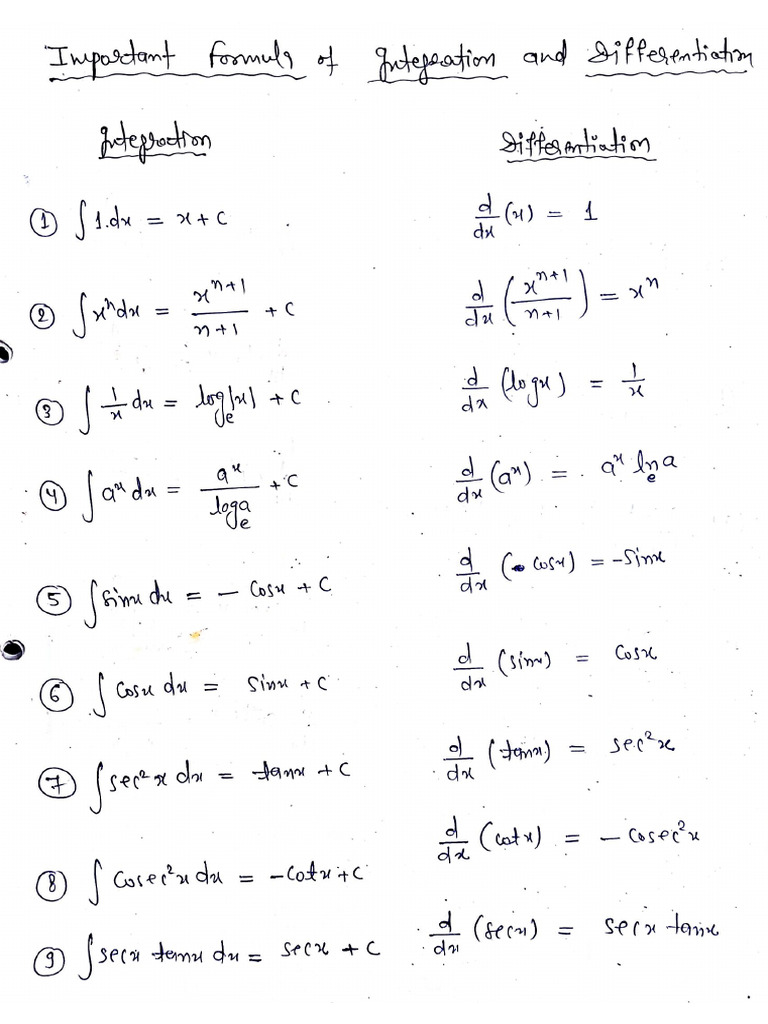 Important formula of Integration and Differentiation
Integration Differentiation
① ∫1.dx = x + c d/dx (x) = 1
② ∫xⁿdx = xⁿ⁺¹/n+1 + c d/dx (xⁿ⁺¹/n+1) = xⁿ
③ ∫1/x dx = logₑ|x| + c d/dx (logx) = 1/x
④ ∫aˣ dx = aˣ/logₑa + c d/dx (aˣ) = aˣ lnₑa
⑤ ∫sinx dx = - Cosx + C d/dx (cosx) = -Sinx
⑥ ∫Cosx dx = Sinx + C d/dx (sinx) = Cosx
⑦ ∫sec²x dx = tanx + C d/dx (tanx) = sec²x
⑧ ∫Cosec²x dx = -Cotx + C d/dx (Cotx) = - Cosec²x
⑨ ∫secx tanx dx = secx + C d/dx (secx) = secx tanx